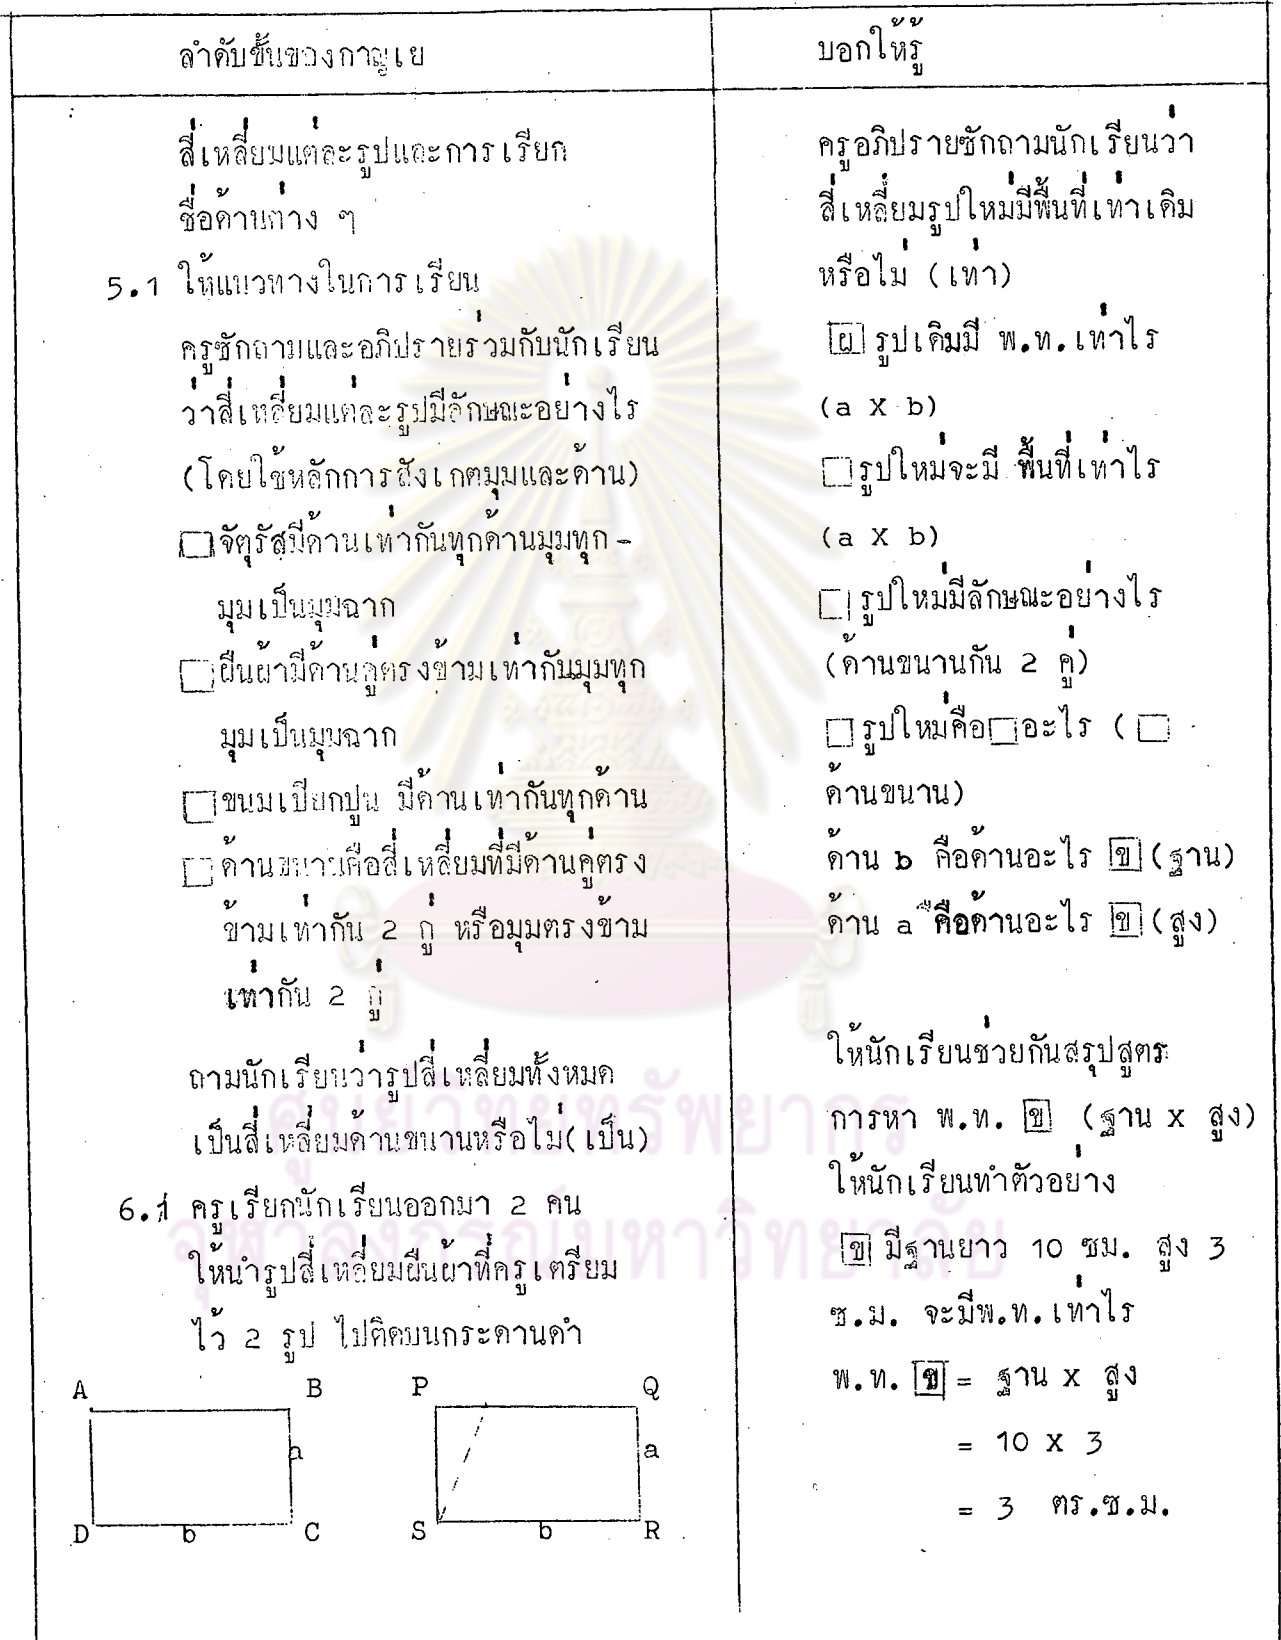 ลำดับขั้นของกาญเย
สี่เหลี่ยมแต่ละรูปและการเรียก
ชื่อด้านต่าง ๆ
5.1 ให้แนวทางในการเรียน
ครูซักถามและอภิปรายร่วมกับนักเรียน
ว่าสี่เหลี่ยมแต่ละรูปมีลักษณะอย่างไร
(โดยใช้หลักการสังเกตมุมและด้าน)
□จัตุรัสมีด้านเท่ากันทุกด้านมุมทุก-
มุมเป็นมุมฉาก
□ผืนผ้ามีด้านคู่ตรงข้ามเท่ากันมุมทุก
มุมเป็นมุมฉาก
□ขนมเปียกปูน มีด้านเท่ากันทุกด้าน
□ด้านขนานคือสี่เหลี่ยมที่มีด้านคู่ตรง
ข้ามเท่ากัน 2 คู่ หรือมุมตรงข้าม
เท่ากัน 2 คู่
ถามนักเรียนว่ารูปสี่เหลี่ยมทั้งหมด
เป็นสี่เหลี่ยมด้านขนานหรือไม่(เป็น)
6.1 ครูเรียกนักเรียนออกมา 2 คน
ให้นำรูปสี่เหลี่ยมผืนผ้าที่ครูเตรียม
ไว้ 2 รูป ไปติดบนกระดานดำ
A B P Q
a a
D b C S b R
บอกให้รู้
ครูอภิปรายซักถามนักเรียนว่า
สี่เหลี่ยมรูปใหม่มีพื้นที่เท่าเดิม
หรือไม่ (เท่า)
ผ รูปเดิมมี พ.ท.เท่าไร
(a X b)
□รูปใหม่จะมี พื้นที่เท่าไร
(a X b)
□รูปใหม่มีลักษณะอย่างไร
(ด้านขนานกัน 2 คู่)
□รูปใหม่คือ□อะไร (□
ด้านขนาน)
ด้าน b คือด้านอะไร ข (ฐาน)
ด้าน a คือด้านอะไร ข (สูง)
ให้นักเรียนช่วยกันสรุปสูตร
การหา พ.ท. ข (ฐาน x สูง)
ให้นักเรียนทำตัวอย่าง
ข มีฐานยาว 10 ซม. สูง 3
ซ.ม. จะมีพ.ท.เท่าไร
พ.ท. ข = ฐาน x สูง
= 10 X 3
= 3 ตร.ซ.ม.
ศูนย์วิทยทรัพยากร
จุฬาลงกรณ์มหาวิทยาลัย